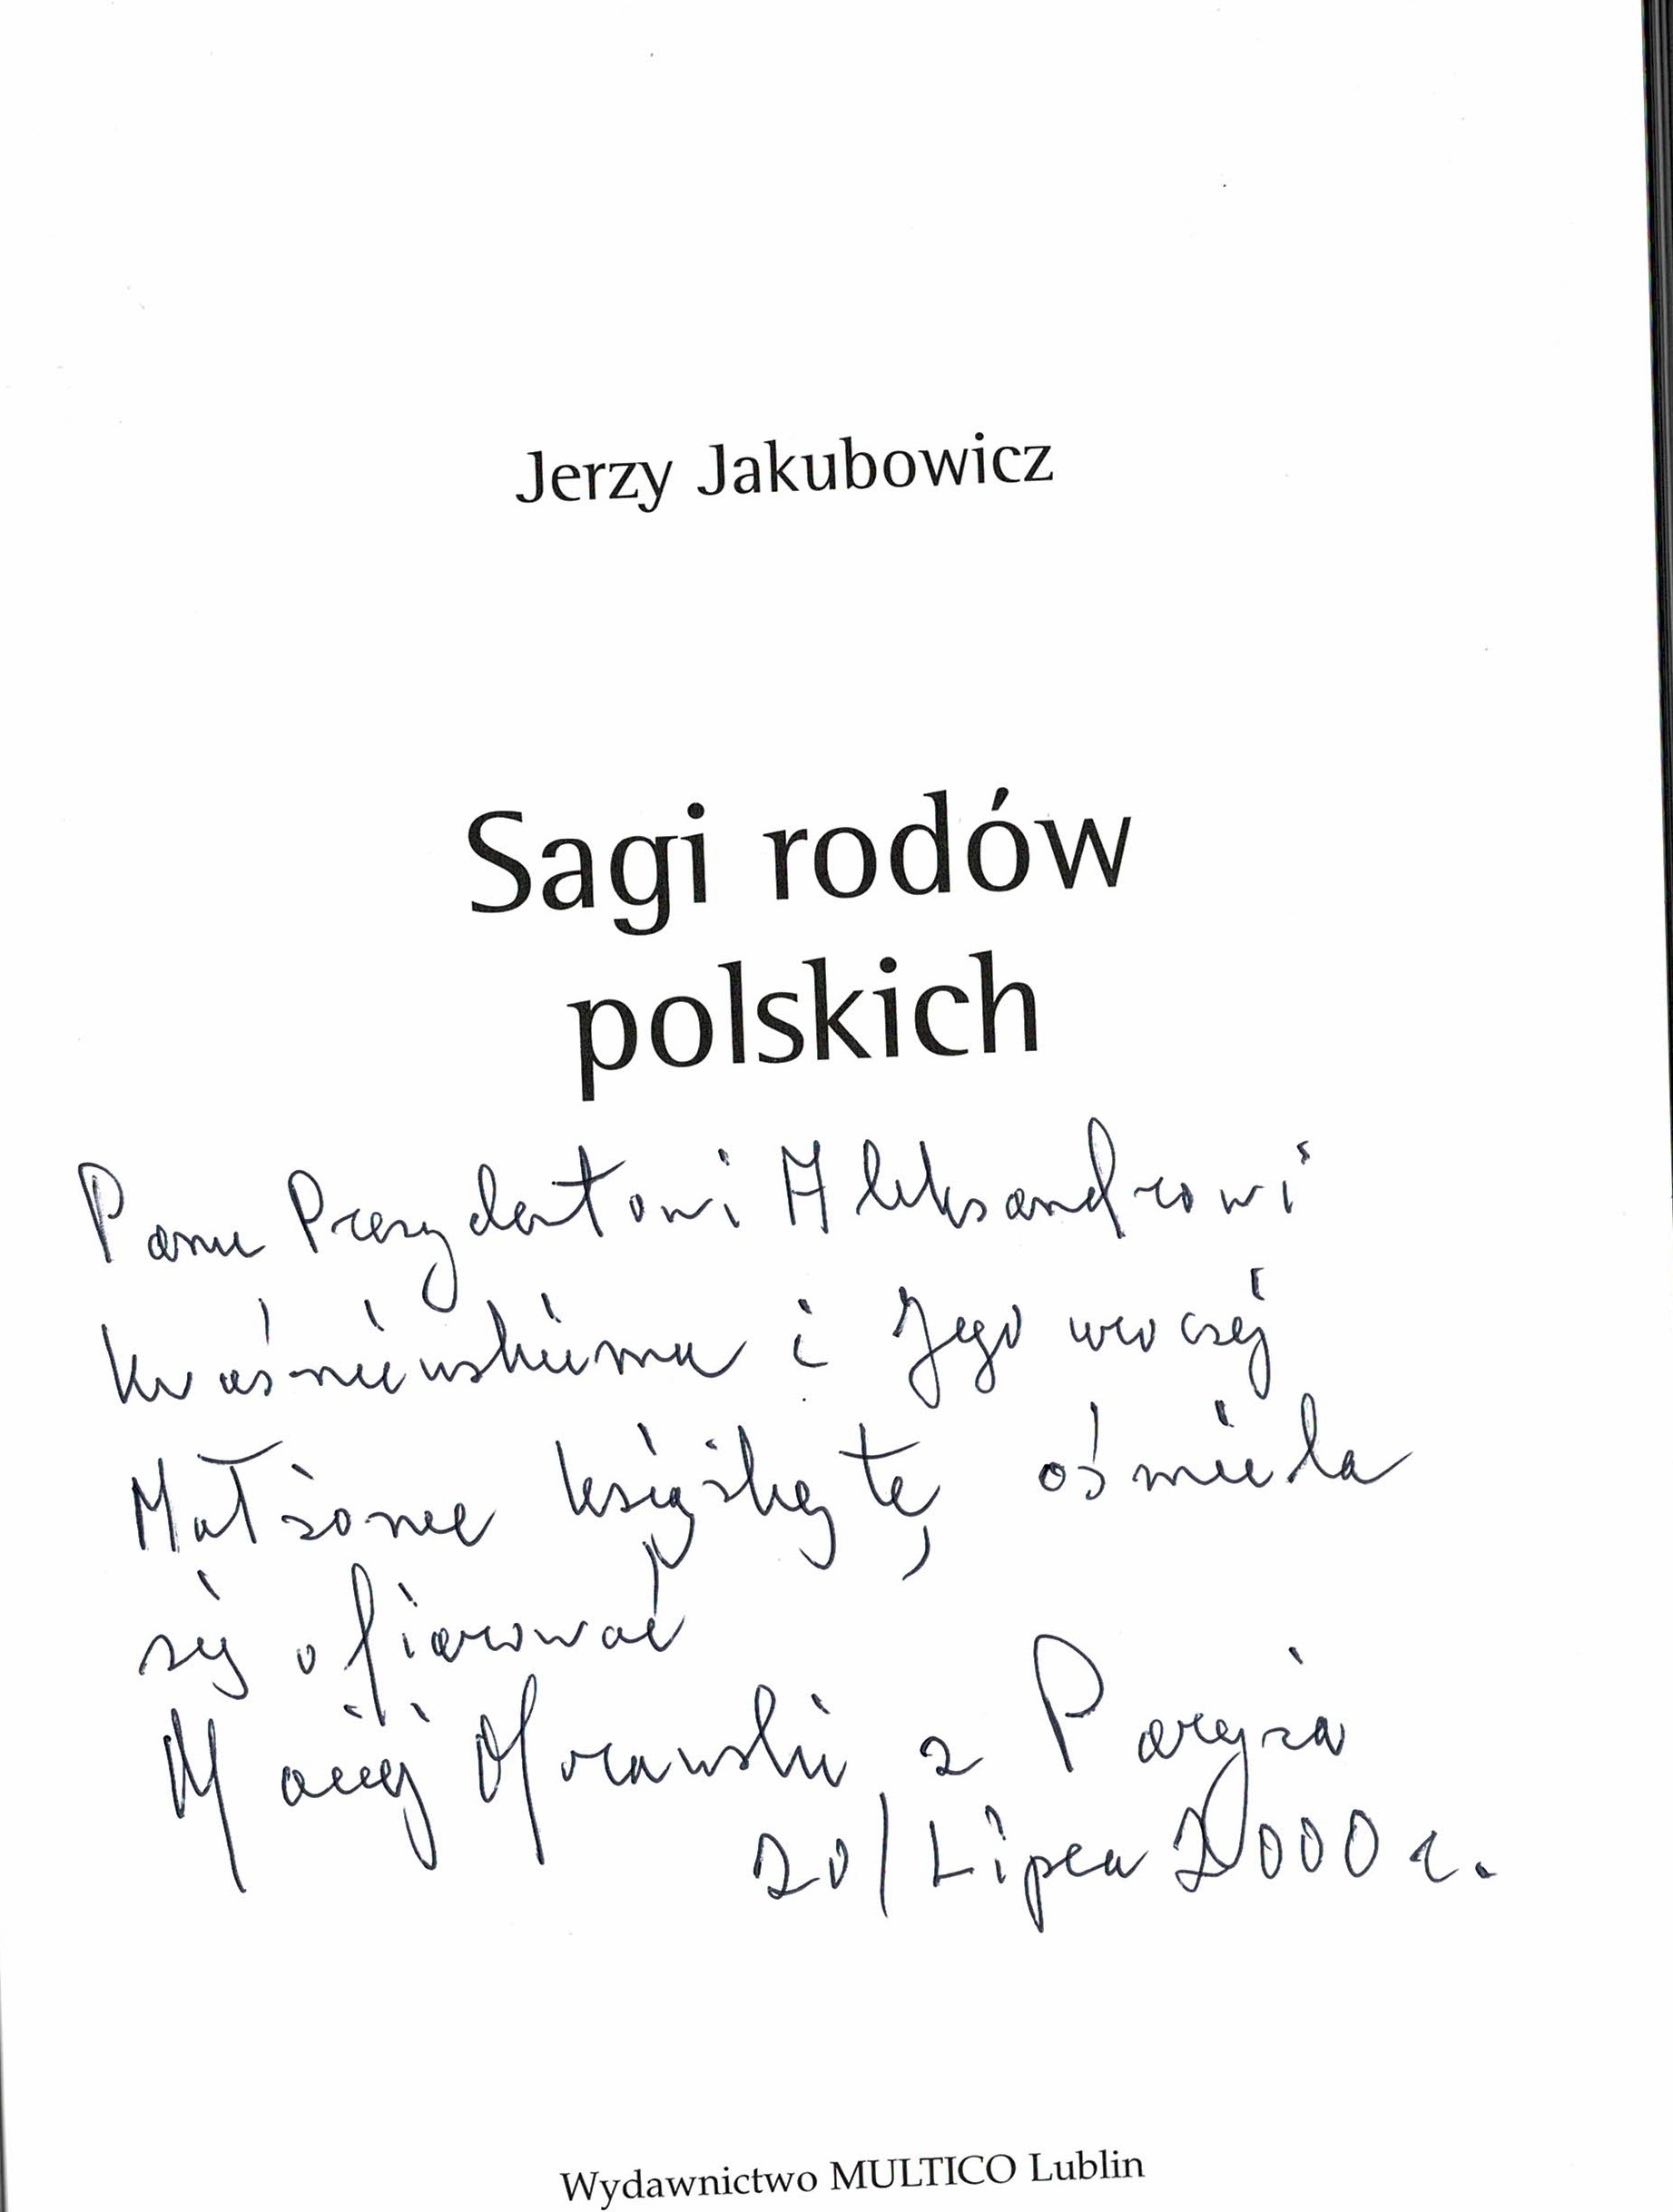 Jerzy Jakubowicz
Sagi rodów
polskich
Panu Prezydentowi Aleksandrowi
Kwaśniewskiemu i Jego uroczej
Małżonce książkę tę, ośmiela
się ofiarować
Maciej Morawski z Paryża
20/Lipca 2000 r.
Wydawnictwo MULTICO Lublin